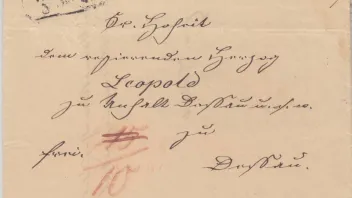 Sr. Hoheit
dem regierenden Herzog
Leopold
zu Anhalt Dessau u. s. w.
zu
frei.
10
Dessau.